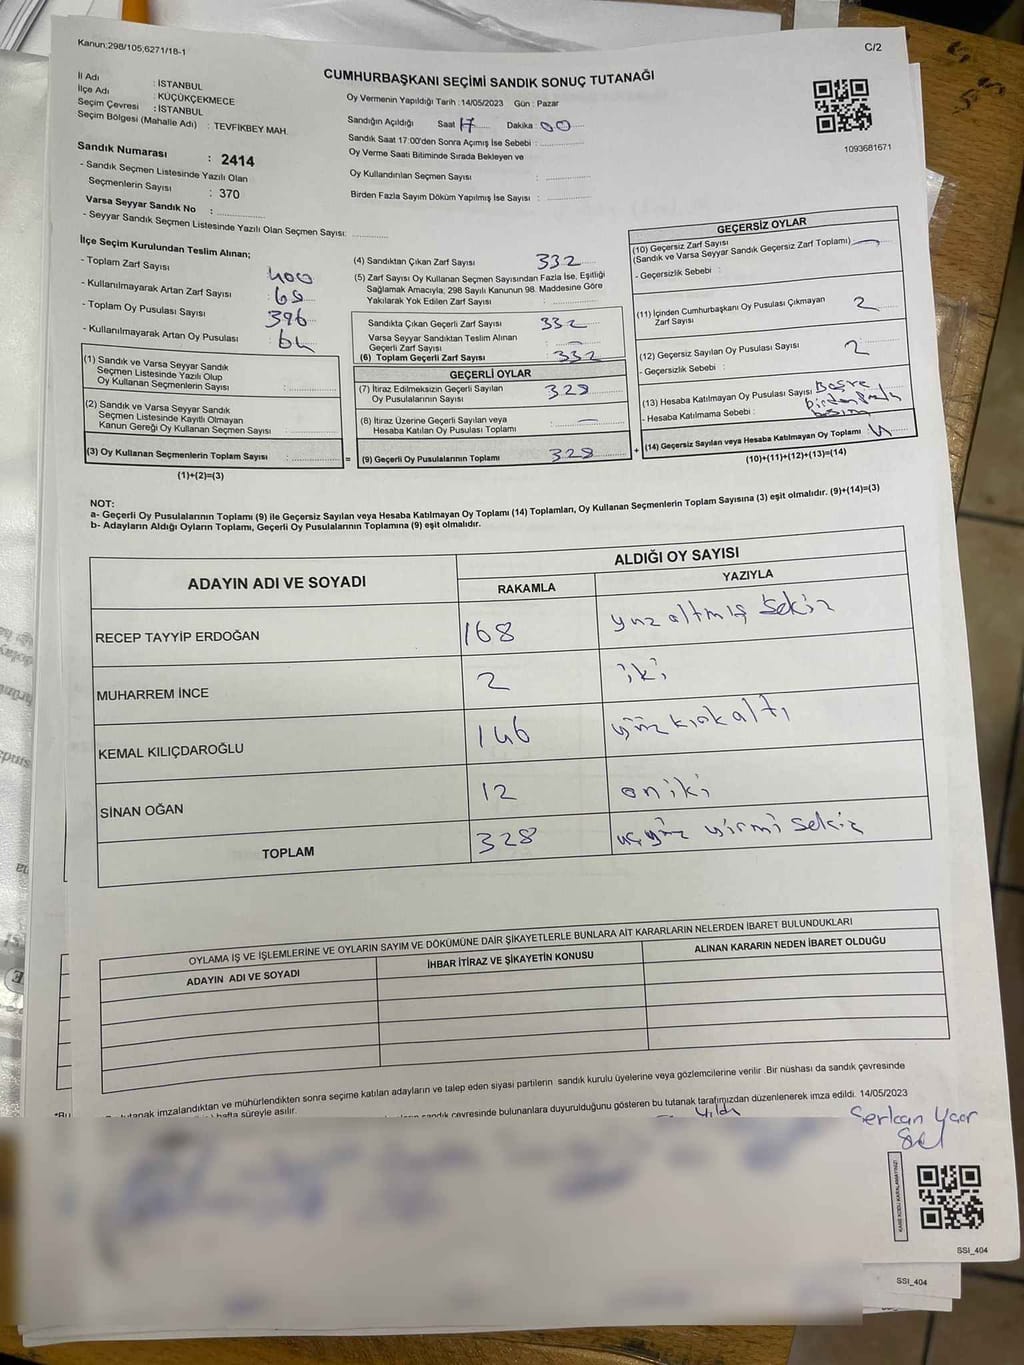 Kanun;298/105;6271/18-1
C/2
CUMHURBAŞKANI SEÇİMİ SANDIK SONUÇ TUTANAĞI
İl Adı : İSTANBUL
İlçe Adı : KÜÇÜKÇEKMECE
Seçim Çevresi : İSTANBUL
Seçim Bölgesi (Mahalle Adı) : TEVFİKBEY MAH.
Oy Vermenin Yapıldığı Tarih : 14/05/2023 Gün : Pazar
Sandığın Açıldığı Saat 17 Dakika 00
Sandık Saat 17:00'den Sonra Açımış İse Sebebi :
Oy Verme Saati Bitiminde Sırada Bekleyen ve
Oy Kullandırılan Seçmen Sayısı :
Birden Fazla Sayım Döküm Yapılmış İse Sayısı :
1093681671
Sandık Numarası : 2414
- Sandık Seçmen Listesinde Yazılı Olan
Seçmenlerin Sayısı : 370
Varsa Seyyar Sandık No :
- Seyyar Sandık Seçmen Listesinde Yazılı Olan Seçmen Sayısı:
İlçe Seçim Kurulundan Teslim Alınan;
- Toplam Zarf Sayısı 400
- Kullanılmayarak Artan Zarf Sayısı : 68
- Toplam Oy Pusulası Sayısı 396
- Kullanılmayarak Artan Oy Pusulası : 64
(1) Sandık ve Varsa Seyyar Sandık
Seçmen Listesinde Yazılı Olup
Oy Kullanan Seçmenlerin Sayısı :
(2) Sandık ve Varsa Seyyar Sandık
Seçmen Listesinde Kayıtlı Olmayan
Kanun Gereği Oy Kullanan Seçmen Sayısı :
(3) Oy Kullanan Seçmenlerin Toplam Sayısı :
(1)+(2)=(3)
(4) Sandıktan Çıkan Zarf Sayısı 332
(5) Zarf Sayısı Oy Kullanan Seçmen Sayısından Fazla İse, Eşitliği
Sağlamak Amacıyla; 298 Sayılı Kanunun 98. Maddesine Göre
Yakılarak Yok Edilen Zarf Sayısı :
Sandıkta Çıkan Geçerli Zarf Sayısı 332
Varsa Seyyar Sandıktan Teslim Alınan
Geçerli Zarf Sayısı : —
(6) Toplam Geçerli Zarf Sayısı 332
GEÇERLİ OYLAR
(7) İtiraz Edilmeksizin Geçerli Sayılan
Oy Pusulalarının Sayısı 328
(8) İtiraz Üzerine Geçerli Sayılan veya
Hesaba Katılan Oy Pusulası Toplamı : —
= (9) Geçerli Oy Pusulalarının Toplamı 328
GEÇERSİZ OYLAR
(10) Geçersiz Zarf Sayısı
(Sandık ve Varsa Seyyar Sandık Geçersiz Zarf Toplamı) —
- Geçersizlik Sebebi :
(11) İçinden Cumhurbaşkanı Oy Pusulası Çıkmayan
Zarf Sayısı 2
(12) Geçersiz Sayılan Oy Pusulası Sayısı 2
- Geçersizlik Sebebi :
(13) Hesaba Katılmayan Oy Pusulası Sayısı
- Hesaba Katılmama Sebebi :
+ (14) Geçersiz Sayılan veya Hesaba Katılmayan Oy Toplamı 4
(10)+(11)+(12)+(13)=(14)
NOT:
a- Geçerli Oy Pusulalarının Toplamı (9) ile Geçersiz Sayılan veya Hesaba Katılmayan Oy Toplamı (14) Toplamları, Oy Kullanan Seçmenlerin Toplam Sayısına (3) eşit olmalıdır. (9)+(14)=(3)
b- Adayların Aldığı Oyların Toplamı, Geçerli Oy Pusulalarının Toplamına (9) eşit olmalıdır.
ADAYIN ADI VE SOYADI
ALDIĞI OY SAYISI
RAKAMLA YAZIYLA
RECEP TAYYİP ERDOĞAN 168 yüz altmış sekiz
MUHARREM İNCE 2 iki
KEMAL KILIÇDAROĞLU 146 yüz kırk altı
SİNAN OĞAN 12 on iki
TOPLAM 328 üçyüz yirmi sekiz
OYLAMA İŞ VE İŞLEMLERİNE VE OYLARIN SAYIM VE DÖKÜMÜNE DAİR ŞİKAYETLERLE BUNLARA AİT KARARLARIN NELERDEN İBARET BULUNDUKLARI
ADAYIN ADI VE SOYADI İHBAR İTİRAZ VE ŞİKAYETİN KONUSU ALINAN KARARIN NEDEN İBARET OLDUĞU
tutanak imzalandıktan ve mühürlendikten sonra seçime katılan adayların ve talep eden siyasi partilerin sandık kurulu üyelerine veya gözlemcilerine verilir .Bir nüshası da sandık çevresinde
hafta süreyle asılır.
sandık çevresinde bulunanlara duyurulduğunu gösteren bu tutanak tarafımızdan düzenlenerek imza edildi. 14/05/2023
Serkan
SSI_404
SSI_404